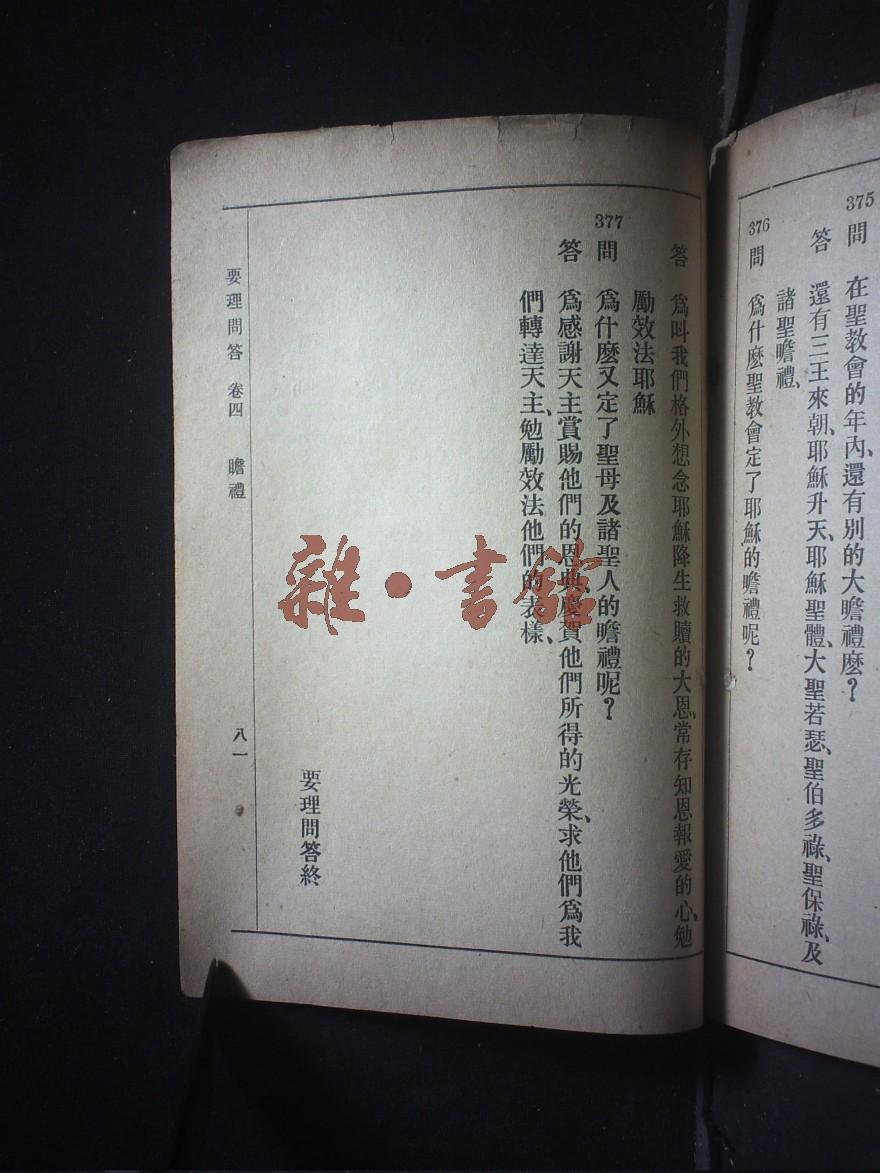 375 問 在聖教會的年內、還有別的大瞻禮麽？
答 還有三王來朝、耶穌升天、耶穌聖體、大聖若瑟、聖伯多祿、聖保祿、及
諸聖瞻禮、
376 問 爲什麽聖教會定了耶穌的瞻禮呢？
答 爲叫我們格外想念耶穌降生救贖的大恩、常存知恩報愛的心、勉
勵效法耶穌
377 問 爲什麽又定了聖母及諸聖人的瞻禮呢？
答 爲感謝天主賞賜他們的恩典、慶賀他們所得的光榮、求他們爲我
們轉達天主、勉勵效法他們的表樣、
要理問答終
要理問答 卷四 瞻禮 八一
雜·書館